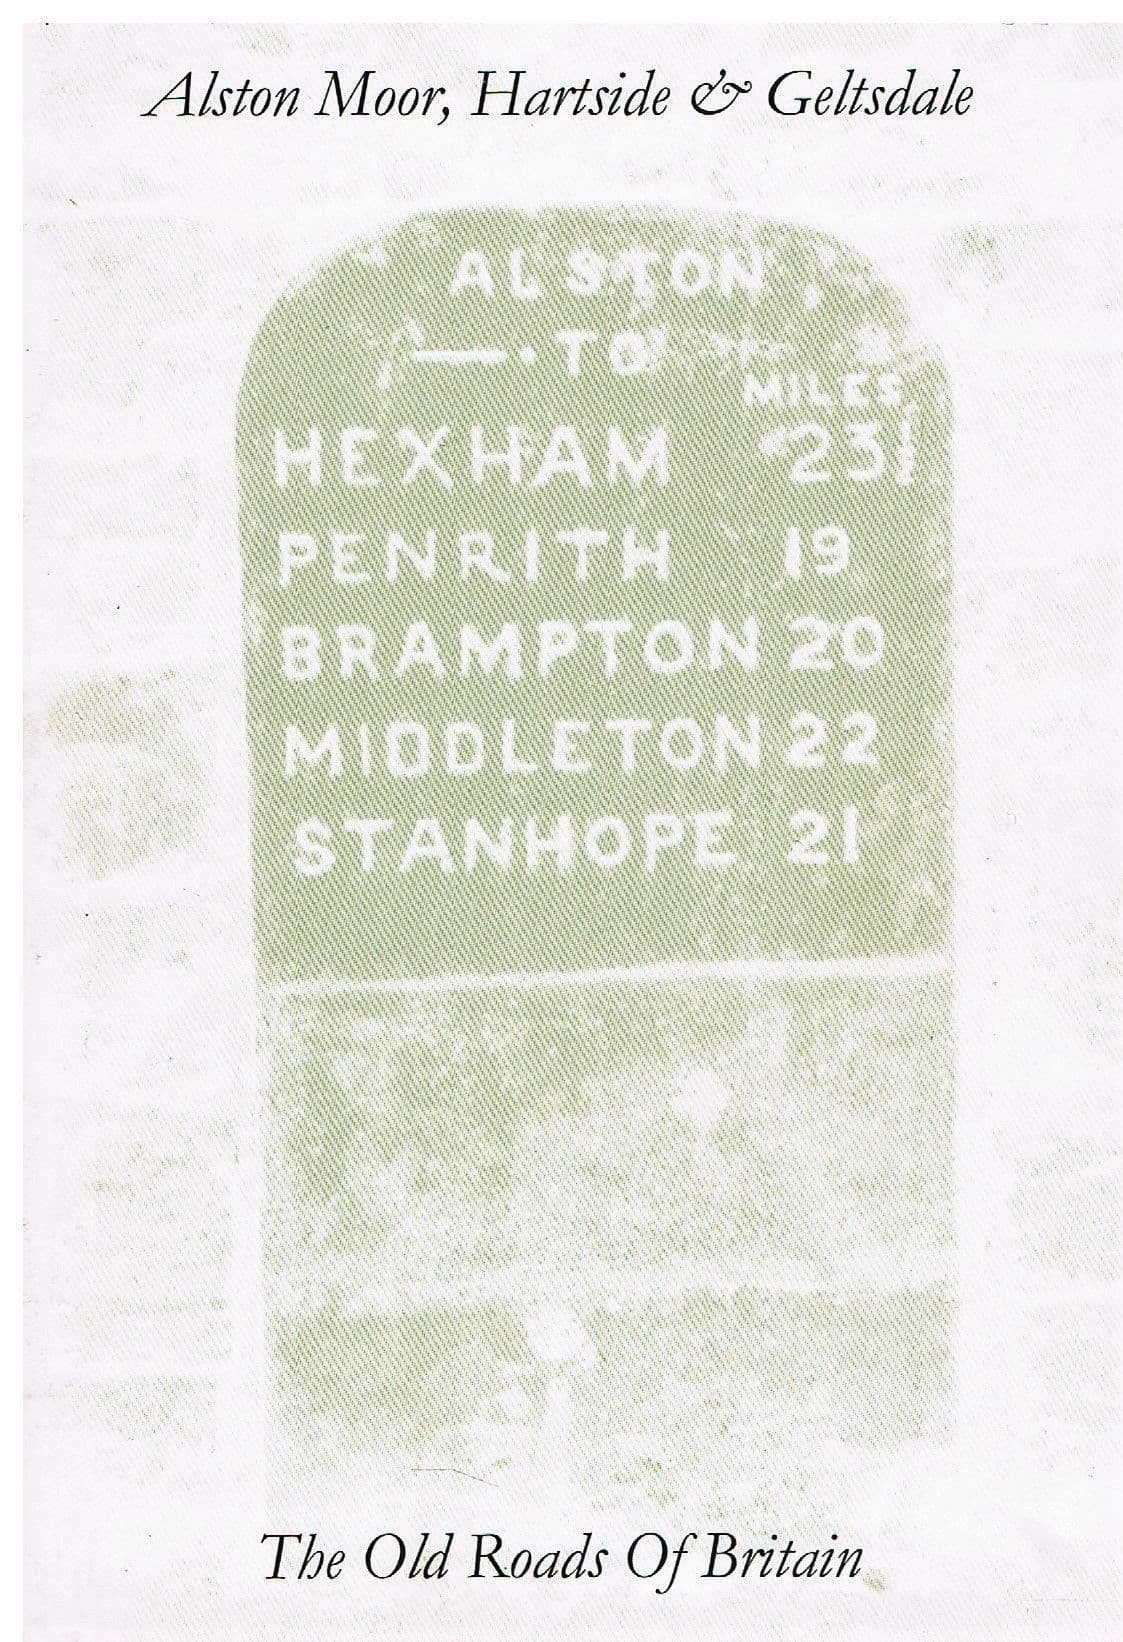 Alston Moor, Hartside & Geltsdale
ALSTON
— · TO
MILES
HEXHAM 23
PENRITH 19
BRAMPTON 20
MIDDLETON 22
STANHOPE 21
The Old Roads Of Britain